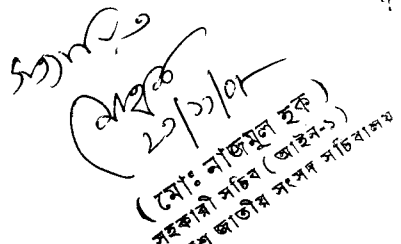 সত্যায়িত
২০/১১/০৮
( মোঃ নাজমুল হক )
সহকারী সচিব ( আইন-১ )
জাতীয় সংসদ সচিবালয়